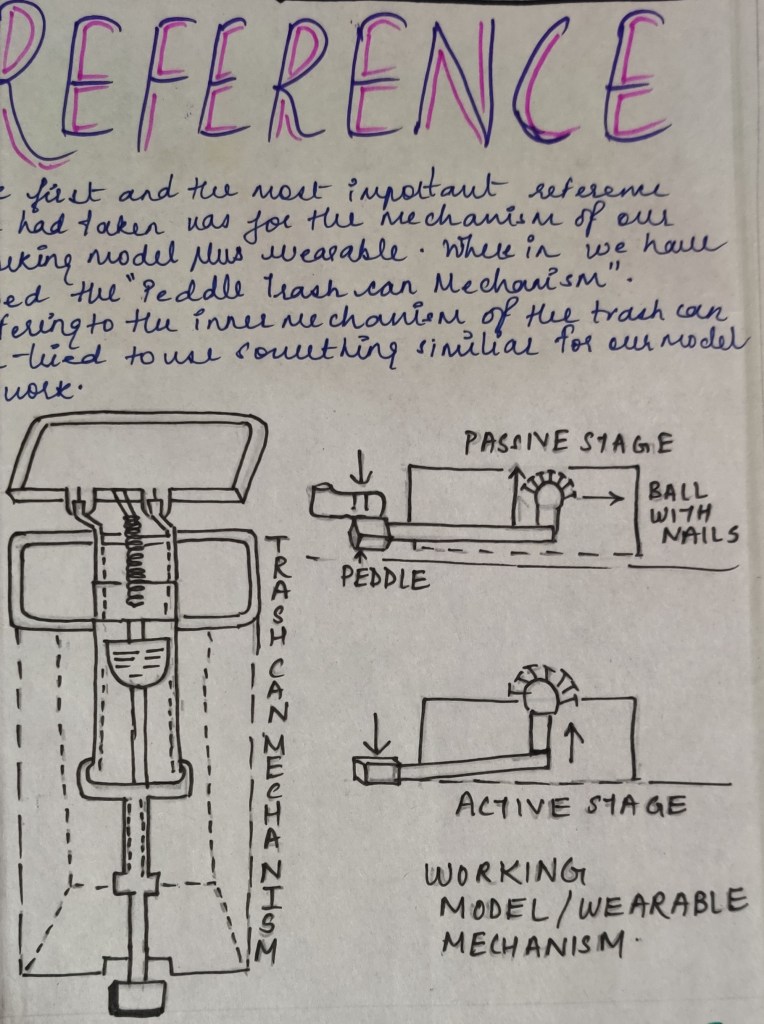 REFERENCE
first and the most important reference
had taken was for the mechanism of our
king model plus wearable. Where in we have
ed the "Peddle Trash can Mechanism".
fering to the inner mechanism of the trash can
tried to use something similiar for our model
work.
PASSIVE STAGE
BALL
WITH
NAILS
PEDDLE
TRASH CAN MECHANISM
ACTIVE STAGE
WORKING
MODEL/WEARABLE
MECHANISM.